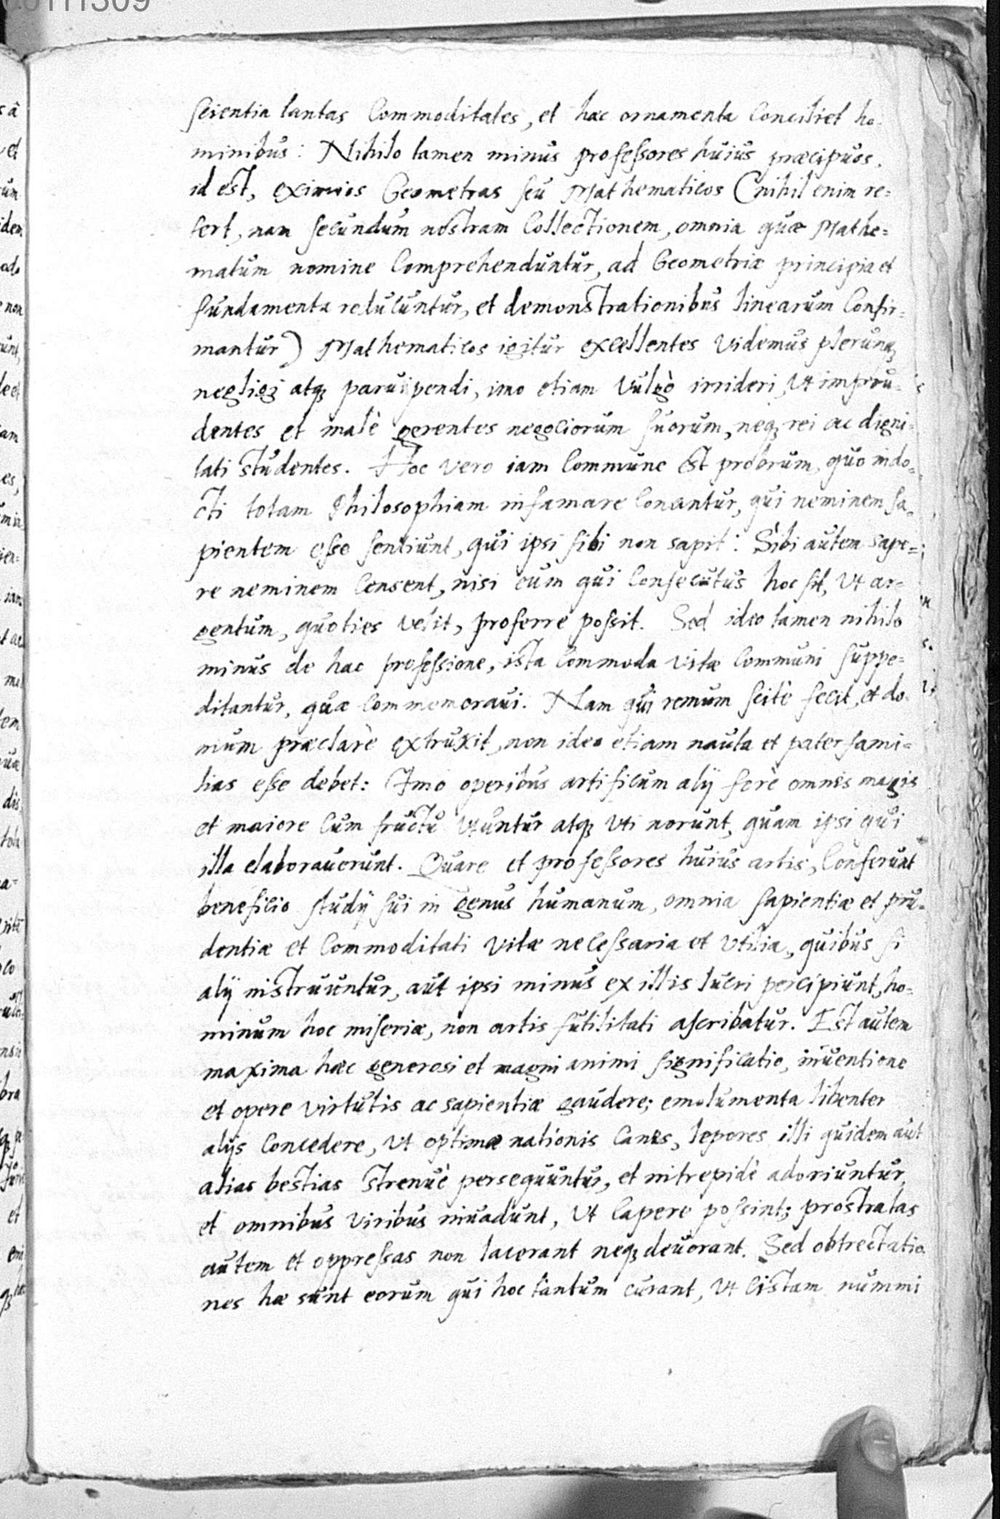 scientia tantas commoditates, et hæc ornamenta conciliet ho-
minibus: Nihilo tamen minus professores huius præcipuos,
id est, eximios Geometras seu Mathematicos (nihil enim re=
fert, nam secundum nostram collectionem, omnia quæ Mathe=
matum nomine comprehenduntur, ad Geometriæ principia et
fundamenta reducuntur, et demonstrationibus linearum confir=
mantur) Mathematicos igitur excellentes videmus plerunq;
negligi atq; paruipendi, imo etiam vulgò irrideri, vt impru-
dentes et malè gerentes negociorum suorum, neq; rei ac digni-
tati studentes. Hoc vero iam commune est probrum, quo indo-
cti totam Philosophiam infamare conantur, qui neminem sa-
pientem esse sentiunt, qui ipsi sibi non sapit: Sibi autem sape=
re neminem censent, nisi eum qui consecutus hoc sit, vt ar-
gentum, quoties velit, proferre possit. Sed ideo tamen nihilo
minus de hac professione, ista commoda vitæ communi suppe=
ditantur, quæ commemoraui. Nam qui remum scitè fecit, et do-
mum præclarè extruxit, non ideo etiam nauta et pater fami=
lias esse debet: Imo operibus artificum alij ferè omnes magis
et maiore cum fructu vtuntur atq; vti norunt, quam ipsi qui
illa elaborauerunt. Quare et professores huius artis, conferunt
beneficio studij sui in genus humanum, omnia sapientiæ et pru-
dentiæ et commoditati vitæ necessaria et vtilia, quibus si
alij instruuntur, aut ipsi minus ex illis lucri percipiunt, ho=
minum hoc miseriæ, non artis futilitati ascribatur. Est autem
maxima hæc generosi et magni animi significatio, inuentione
et opere virtutis ac sapientiæ gaudere; emolumenta libenter
alijs concedere, vt optimæ nationis canes, lepores illi quidem aut
alias bestias strenuè persequuntur, et intrepidè adoriuntur,
et omnibus viribus inuadunt, vt capere possint; prostratas
autem et oppressas non lacerant neq; deuorant. Sed obtrectatio-
nes hæ sunt eorum qui hoc tantum curant, vt cistam nummi